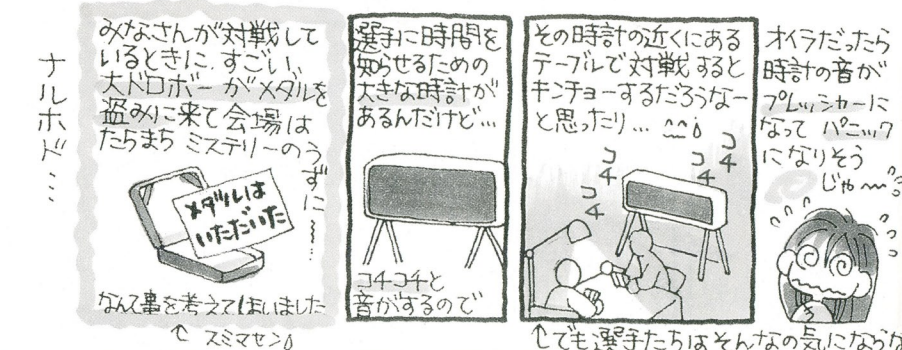 ナルホド…
みなさんが対戦して
いるときに、すごい、
大ドロボーがメダルを
盗みに来て会場は
たちまち ミステリーのうずに〜〜…
メダルは
いただいた
なんて事を考えてしまいました
↑スミマセン
選手に時間を
知らせるための
大きな時計が
あるんだけど…
コチコチと
音がするので
その時計の近くにある
テーブルで対戦すると
キンチョーするだろうなー
と思ったり…
コチ
コチ
コチ
↑でも選手たちはそんなの気にならな
オイラだったら
時計の音が
プレッシャーに
なって パニック
になりそう
じゃ〜